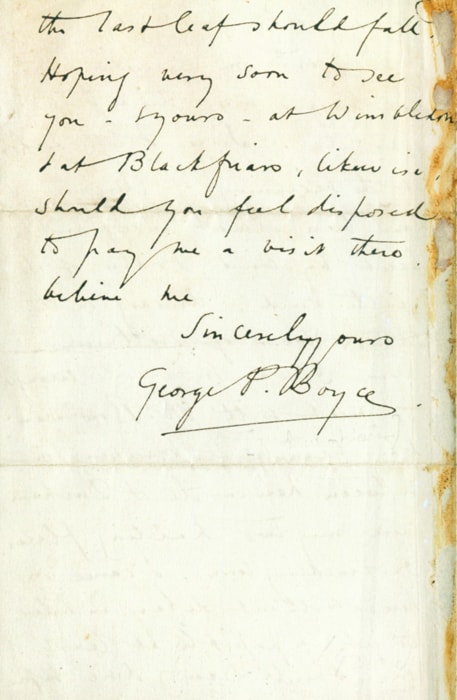 the last leaf should fall.
Hoping very soon to see
you - & yours - at Wimbledon
& at Blackfriars, likewise,
should you feel disposed
to pay me a visit there.
believe me
Sincerely yours
George P. Boyce.